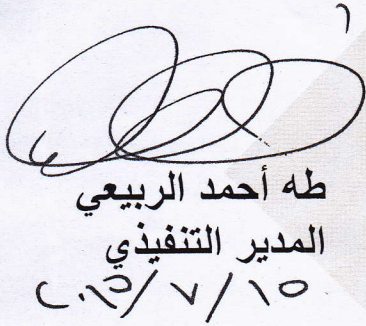 طه أحمد الربيعي
المدير التنفيذي
٢٠١٥/٧/١٥